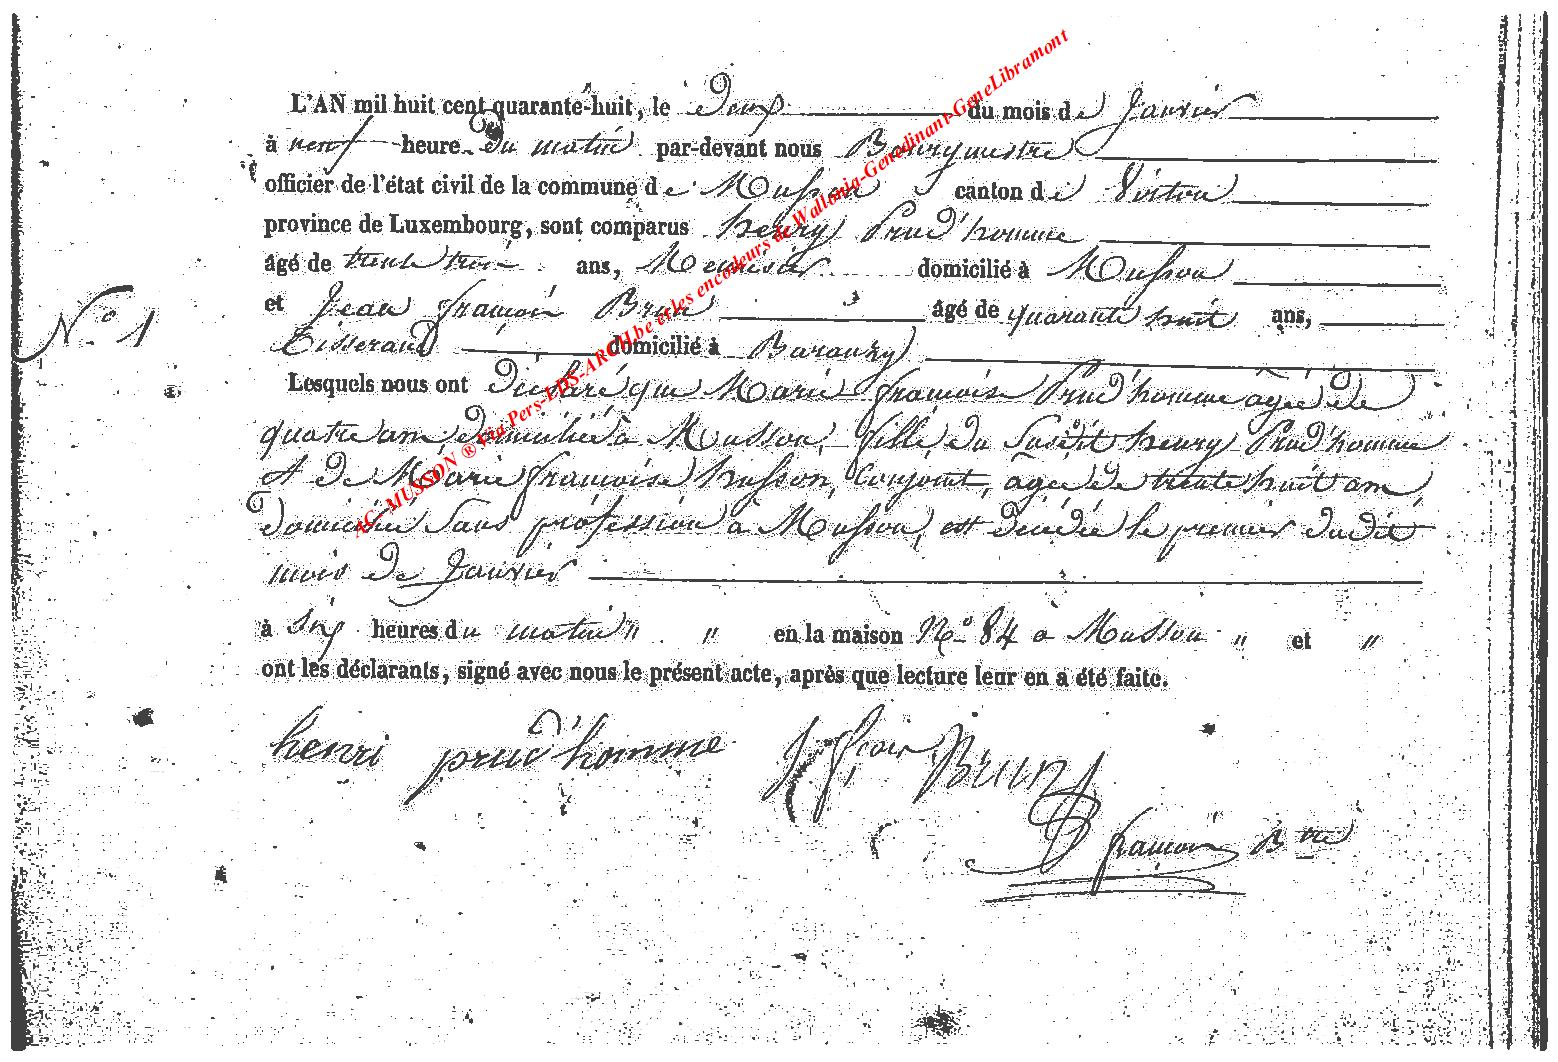 L'AN mil huit cent quarante-huit, le Deux du mois de Janvier
à neuf heure Du matin par-devant nous Bourgmestre
officier de l'état civil de la commune de Musson canton de Virton
province de Luxembourg, sont comparus henry Prud'homme
âgé de trente trois ans, Menuisier domicilié à Musson
et Jean françois Brun âgé de quarante huit ans,
Tisserand domicilié à Baranzy
N.o 1
Lesquels nous ont Déclaré que Marie françoise Prud'homme agée de
quatre ans domiciliée à Musson, fille du Susdit henry Prud'homme
et de Marie françoise husson, Conjoint, agée de trente huit ans
Domiciliée Sans profession à Musson, est décédée le premier dudit
mois de Janvier
à Six heures du matin " " en la maison No 84 a Musson " et "
ont les déclarants, signé avec nous le présent acte, après que lecture leur en a été faite.
henri prud'homme J fcois Brun
françois Btre
AC- MUSSON ® Via Pers-LDS-ARCH.be et les encodeurs de Wallonia-Genedinant-GeneLibramont